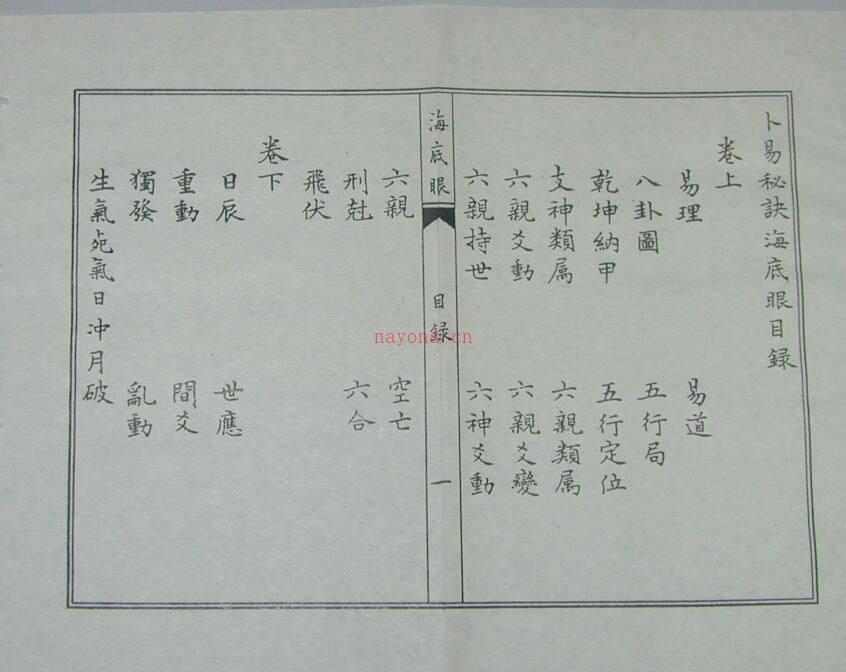 卜易秘訣海底眼目錄
卷上
易理 易道
八卦圖 五行局
乾坤納甲 五行定位
支神類属 六親類属
六親爻動 六親爻變
六親持世 六神爻動
海底眼 目録 一
六親 空亡
刑尅 六合
飛伏
卷下
日辰 世應
重動 間爻
獨發 亂動
生氣死氣日冲月破
nayona.cn